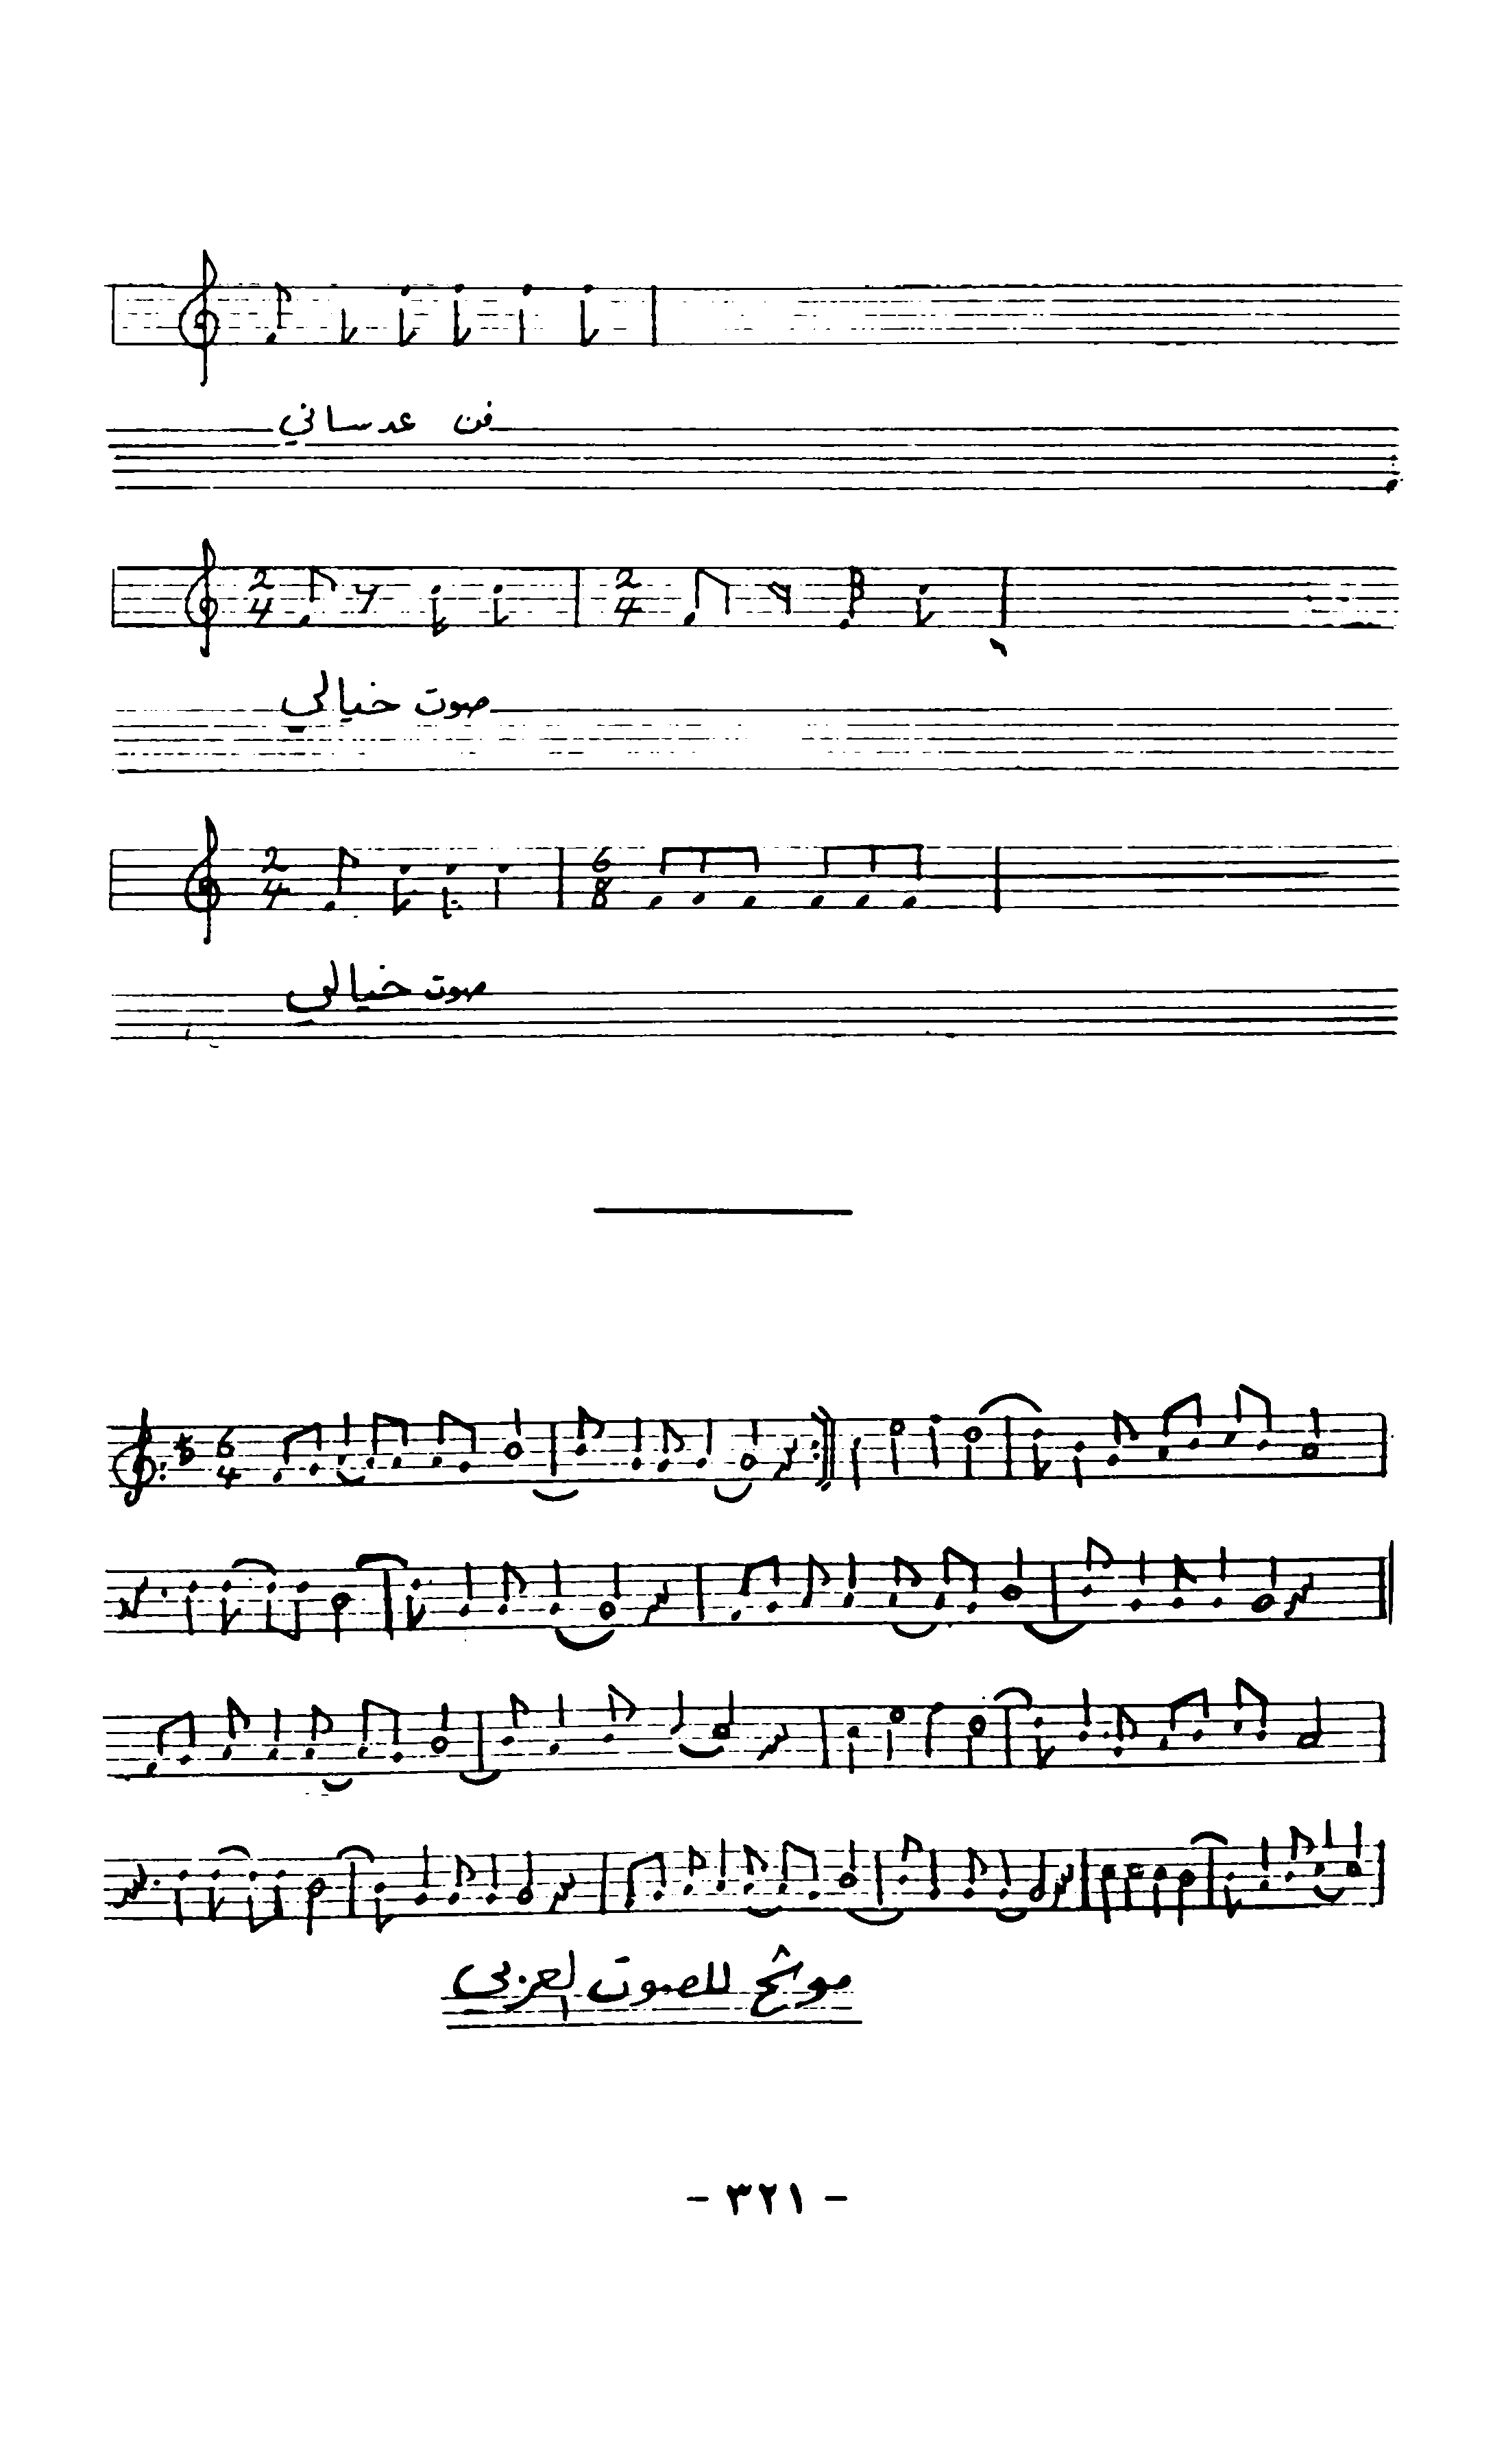 فن عدساني
2 4 2 4
صوت خيالي
2 4 6 8
صوت خيالي
6 4
موشح للصوت العربي
- ٣٢١ -